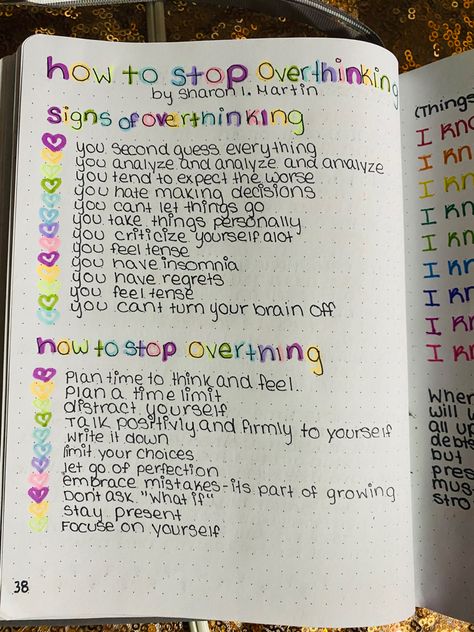 how to stop overthinking
by sharon l. Martin
signs of overthinking
you second guess everything
you analyze and analyze and analyze
you tend to expect the worse
you hate making decisions
you cant let things go
you take things personally
you criticize yourself alot
you feel tense
you have insomnia
you have regrets
you feel tense
you cant turn your brain off
how to stop overthing
Plan time to think and feel.
Plan a time limit
distract yourself
Talk positivly and firmly to yourself
write it down
limit your choices
let go of perfection
embrace mistakes-its part of growing
Dont ask "what if"
stay present
Focus on yourself
38
(Things
I kno
I kn
I kn
I kn
I kn
I kn
I kn
I kn
I kn
When
will
all up
debt
but
pres
mus
stro